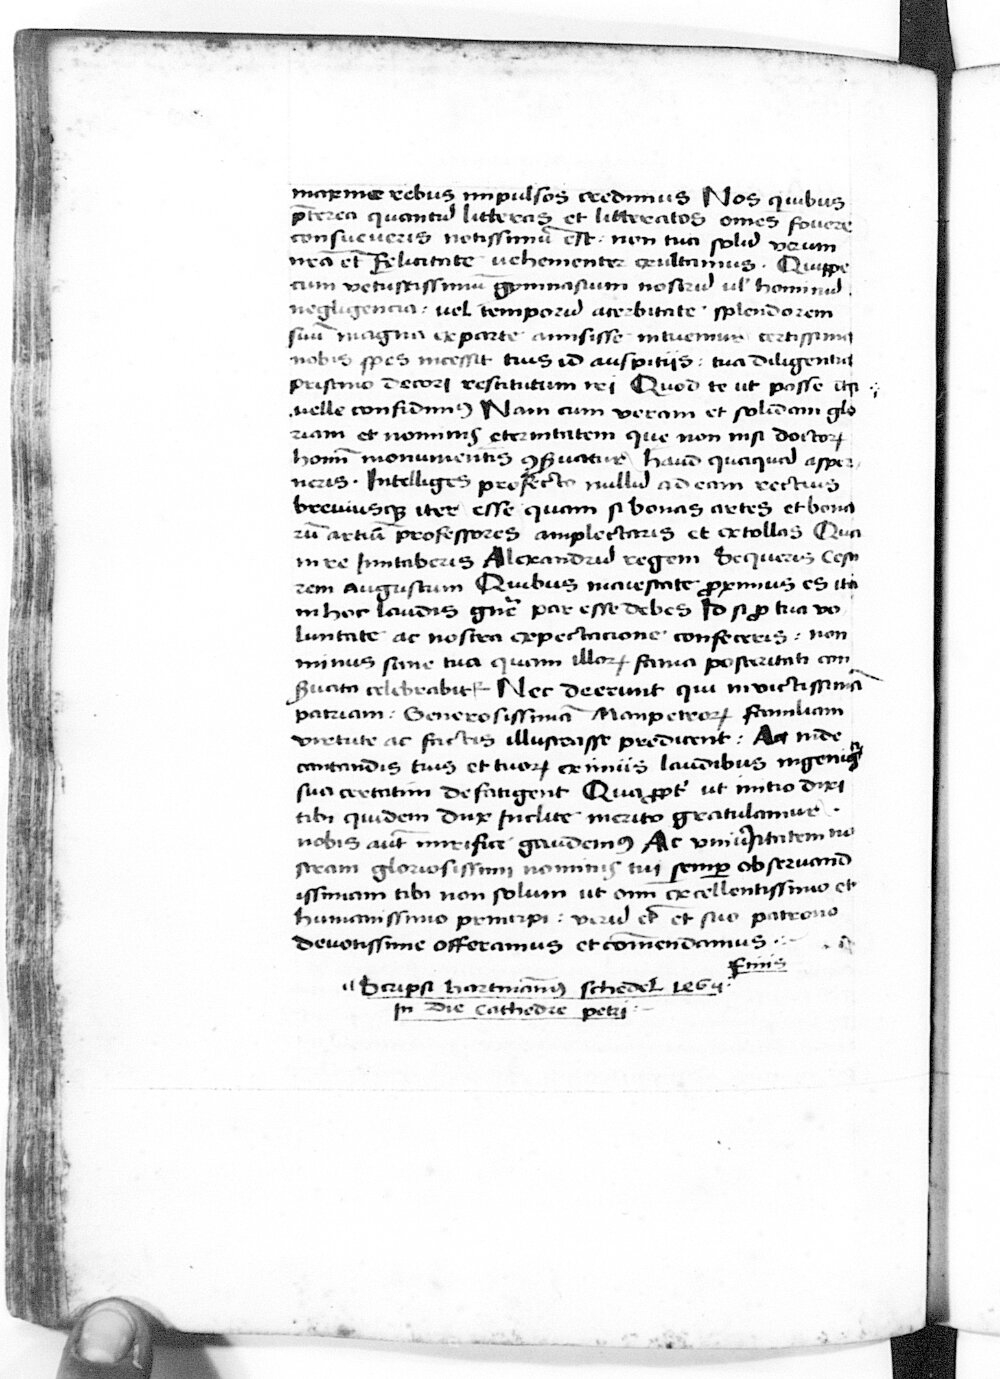 maxime rebus impulsos credimus Nos quibus
p̄terea quantū litteras et litteratos om̄es fovere
consueveris notissimū est: non tua solū verum
nr̄a et Felicitate vehementer exultamus. Quippe
cum vetustissimū gymnasium nostrū ul' hominū
negligencia: vel temporū acerbitate splendorem
suū magna exparte amisisse intuemur certissima
nobis spes incessit tuis id auspitiis: tua diligentia
pristino decori restitutum iri Quod te ut posse ita
velle confidimꝰ Nam cum veram et solidam glo
riam et nominis eternitatem que non nisi doctoꝝ
homī monumentis ꝯẜvatur haud quaquā asper
neris. Intelliges profecto nullū ad eam rectius
breviusqꝫ iter esse quam si bonas artes et bona
rū artiū professores amplectaris et extollas Qua
in re Imitaberis Alexandrū regem Sequeris Cesa
rem Augustum Quibus maiestate ꝓximus es ita
in hoc laudis gn̄e par esse debes Id si ꝓ tua vo
luntate ac nostra expectacione confeceris: non
minus sane tua quam illoꝝ fama posteritati con
ẜvata celebrabitur Nec deerunt qui invictissimā
patriam: Generosissimā Manpetroꝝ familiam
virtute ac factis illustrasse predicent: Ac inde
cantandis tuis et tuoꝝ eximiis laudibus ingenia
sua certatim defatigent Quaꝓpt' ut initio dixi
tibi quidem dux Inclite merito gratulamur.
nobis aut̄ mirifice gaudemꝰ Ac univẜitatem no
stram gloriosissimi nominis tui semꝑ observand
issimam tibi non solum ut om̄i excellentissimo et
humanissimo principi: verū et̄ et suo patrono
devotissime offeramus et com̄endamus.
Finis
Scripsi hartmānꝰ schedel 1464.
In die Cathedre petri